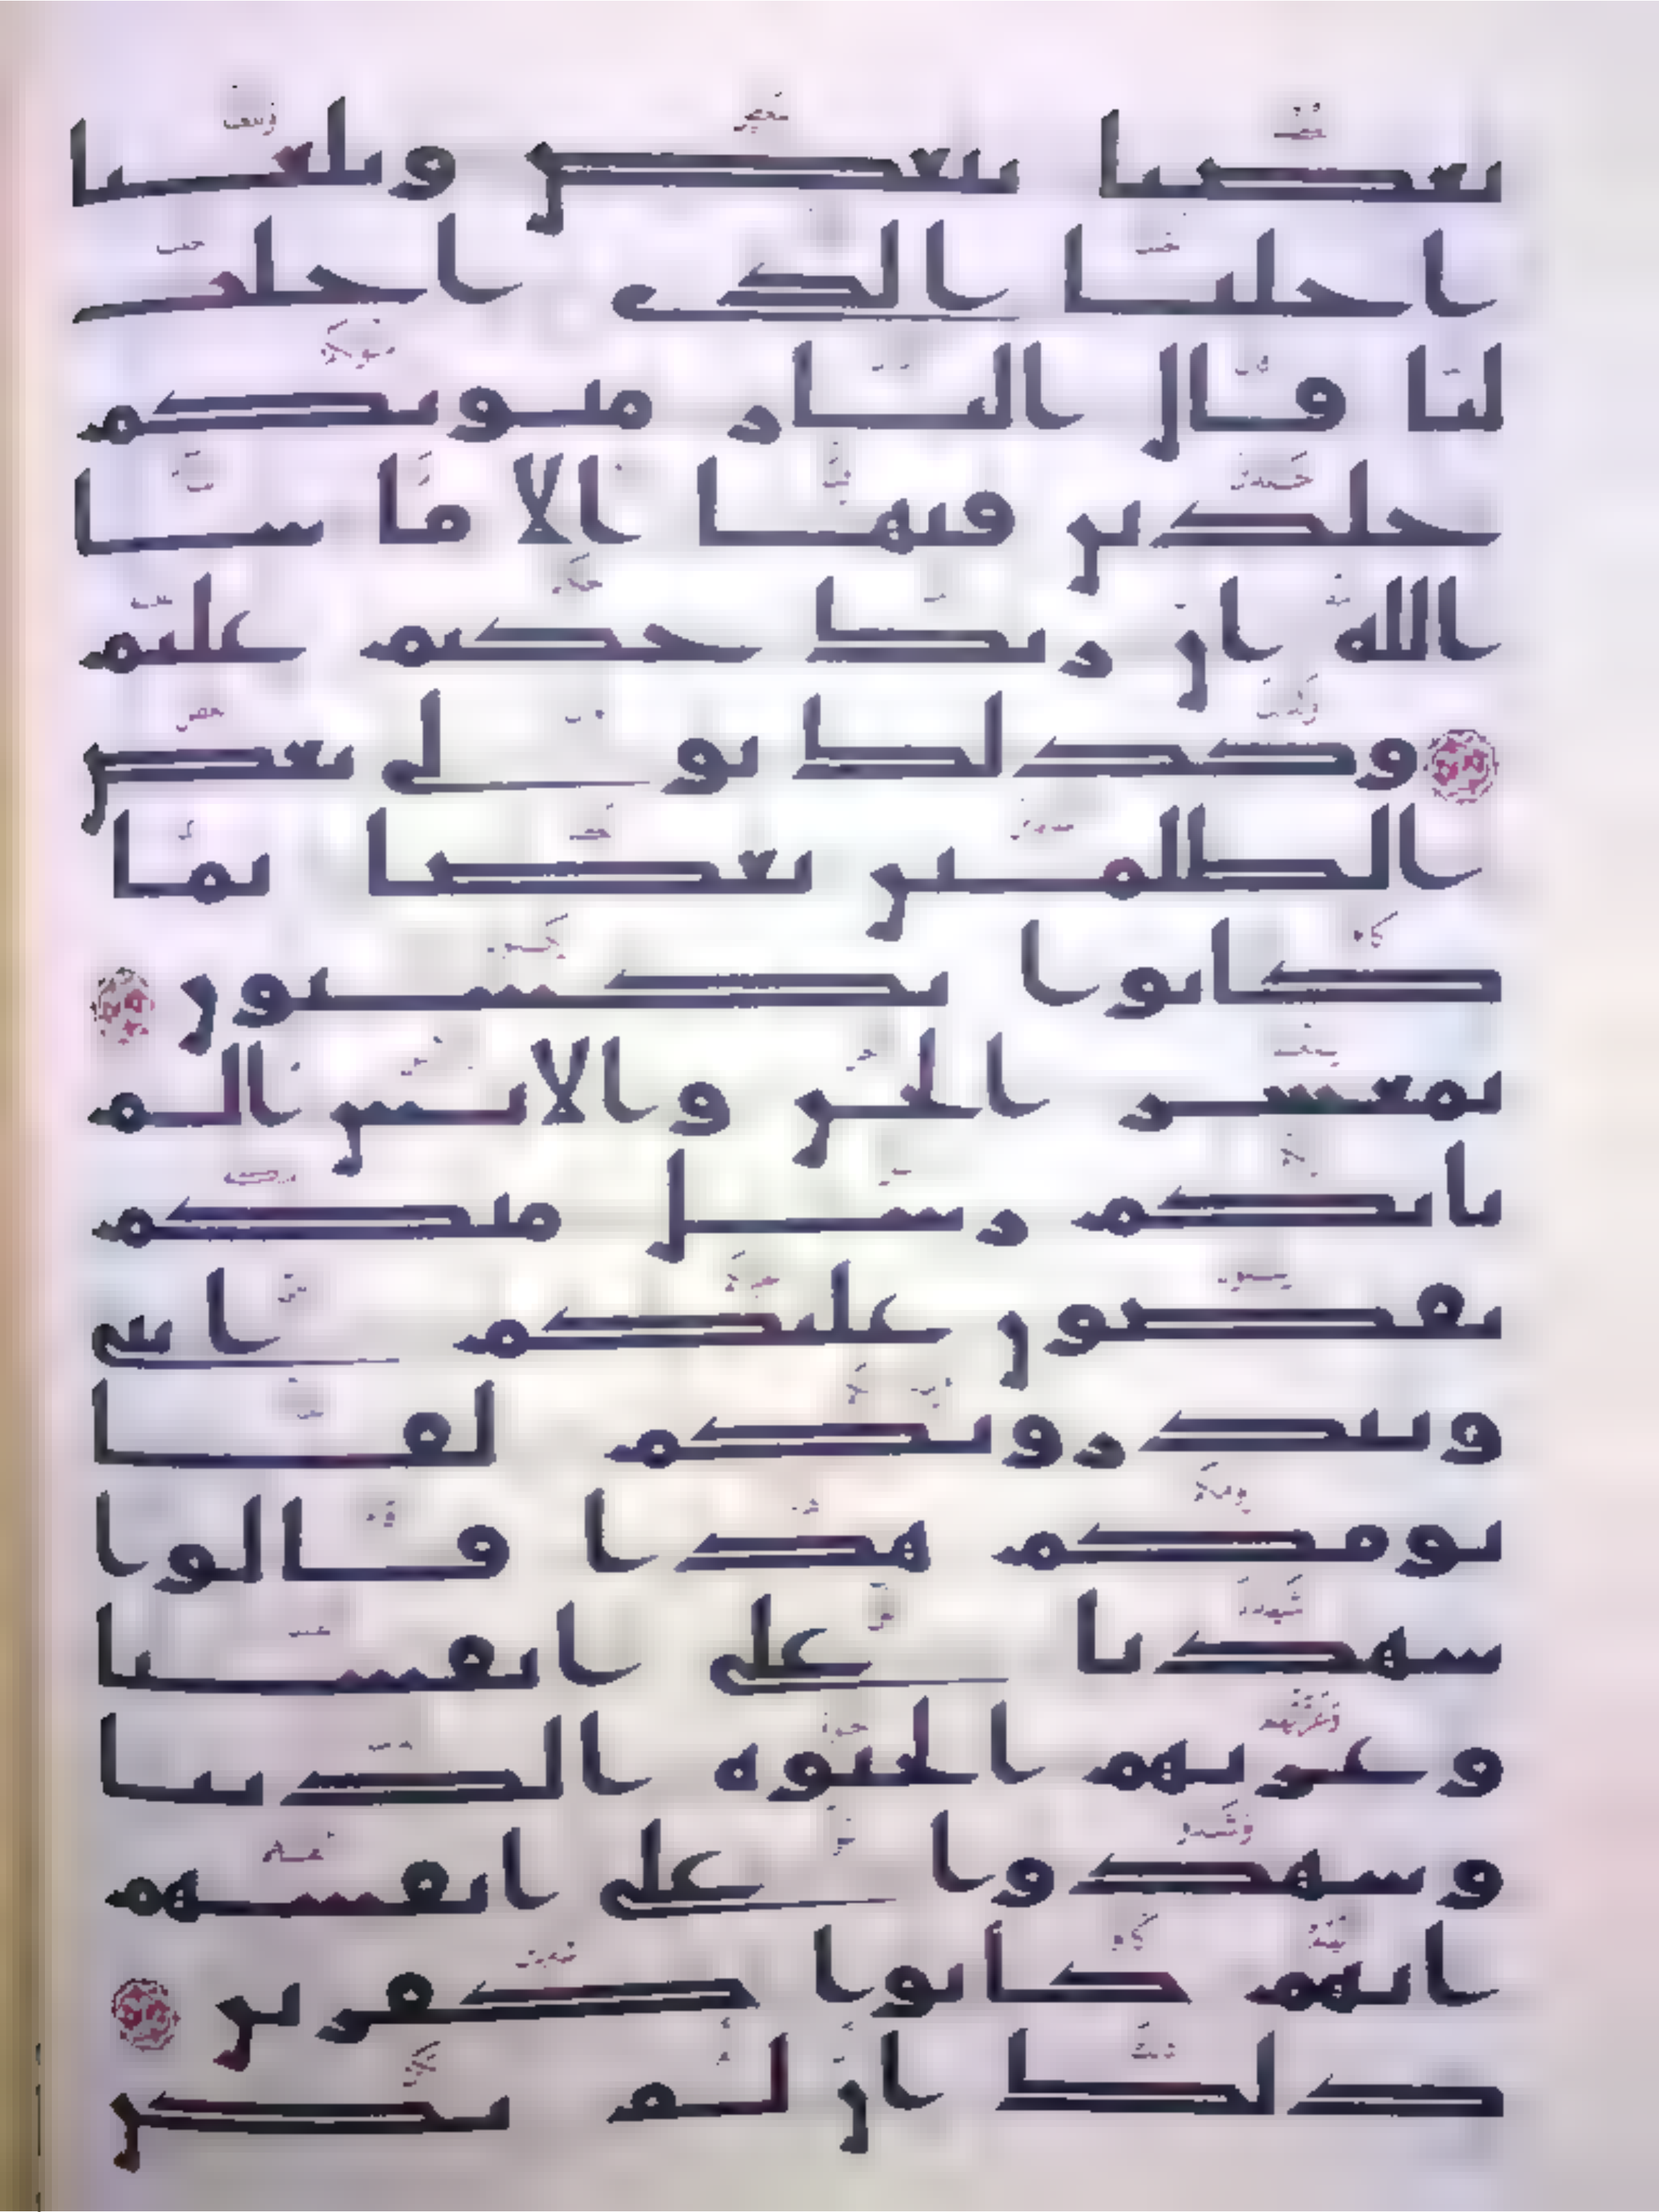 بعضنا ببعض وبلغنا
اجلنا الذي اجلت
لنا قال النار مثويكم
خلدين فيها الا ما شا
الله ان ربك حكيم عليم
وكذلك نولي بعض
الظلمين بعضا بما
كانوا يكسبون
يمعشر الجن والانس الم
ياتكم رسل منكم
يقصون عليكم ايتي
وينذرونكم لقا
يومكم هذا قالوا
شهدنا على انفسنا
وغرتهم الحيوة الدنيا
وشهدوا على انفسهم
انهم كانوا كفرين
ذلك ان لم يكن